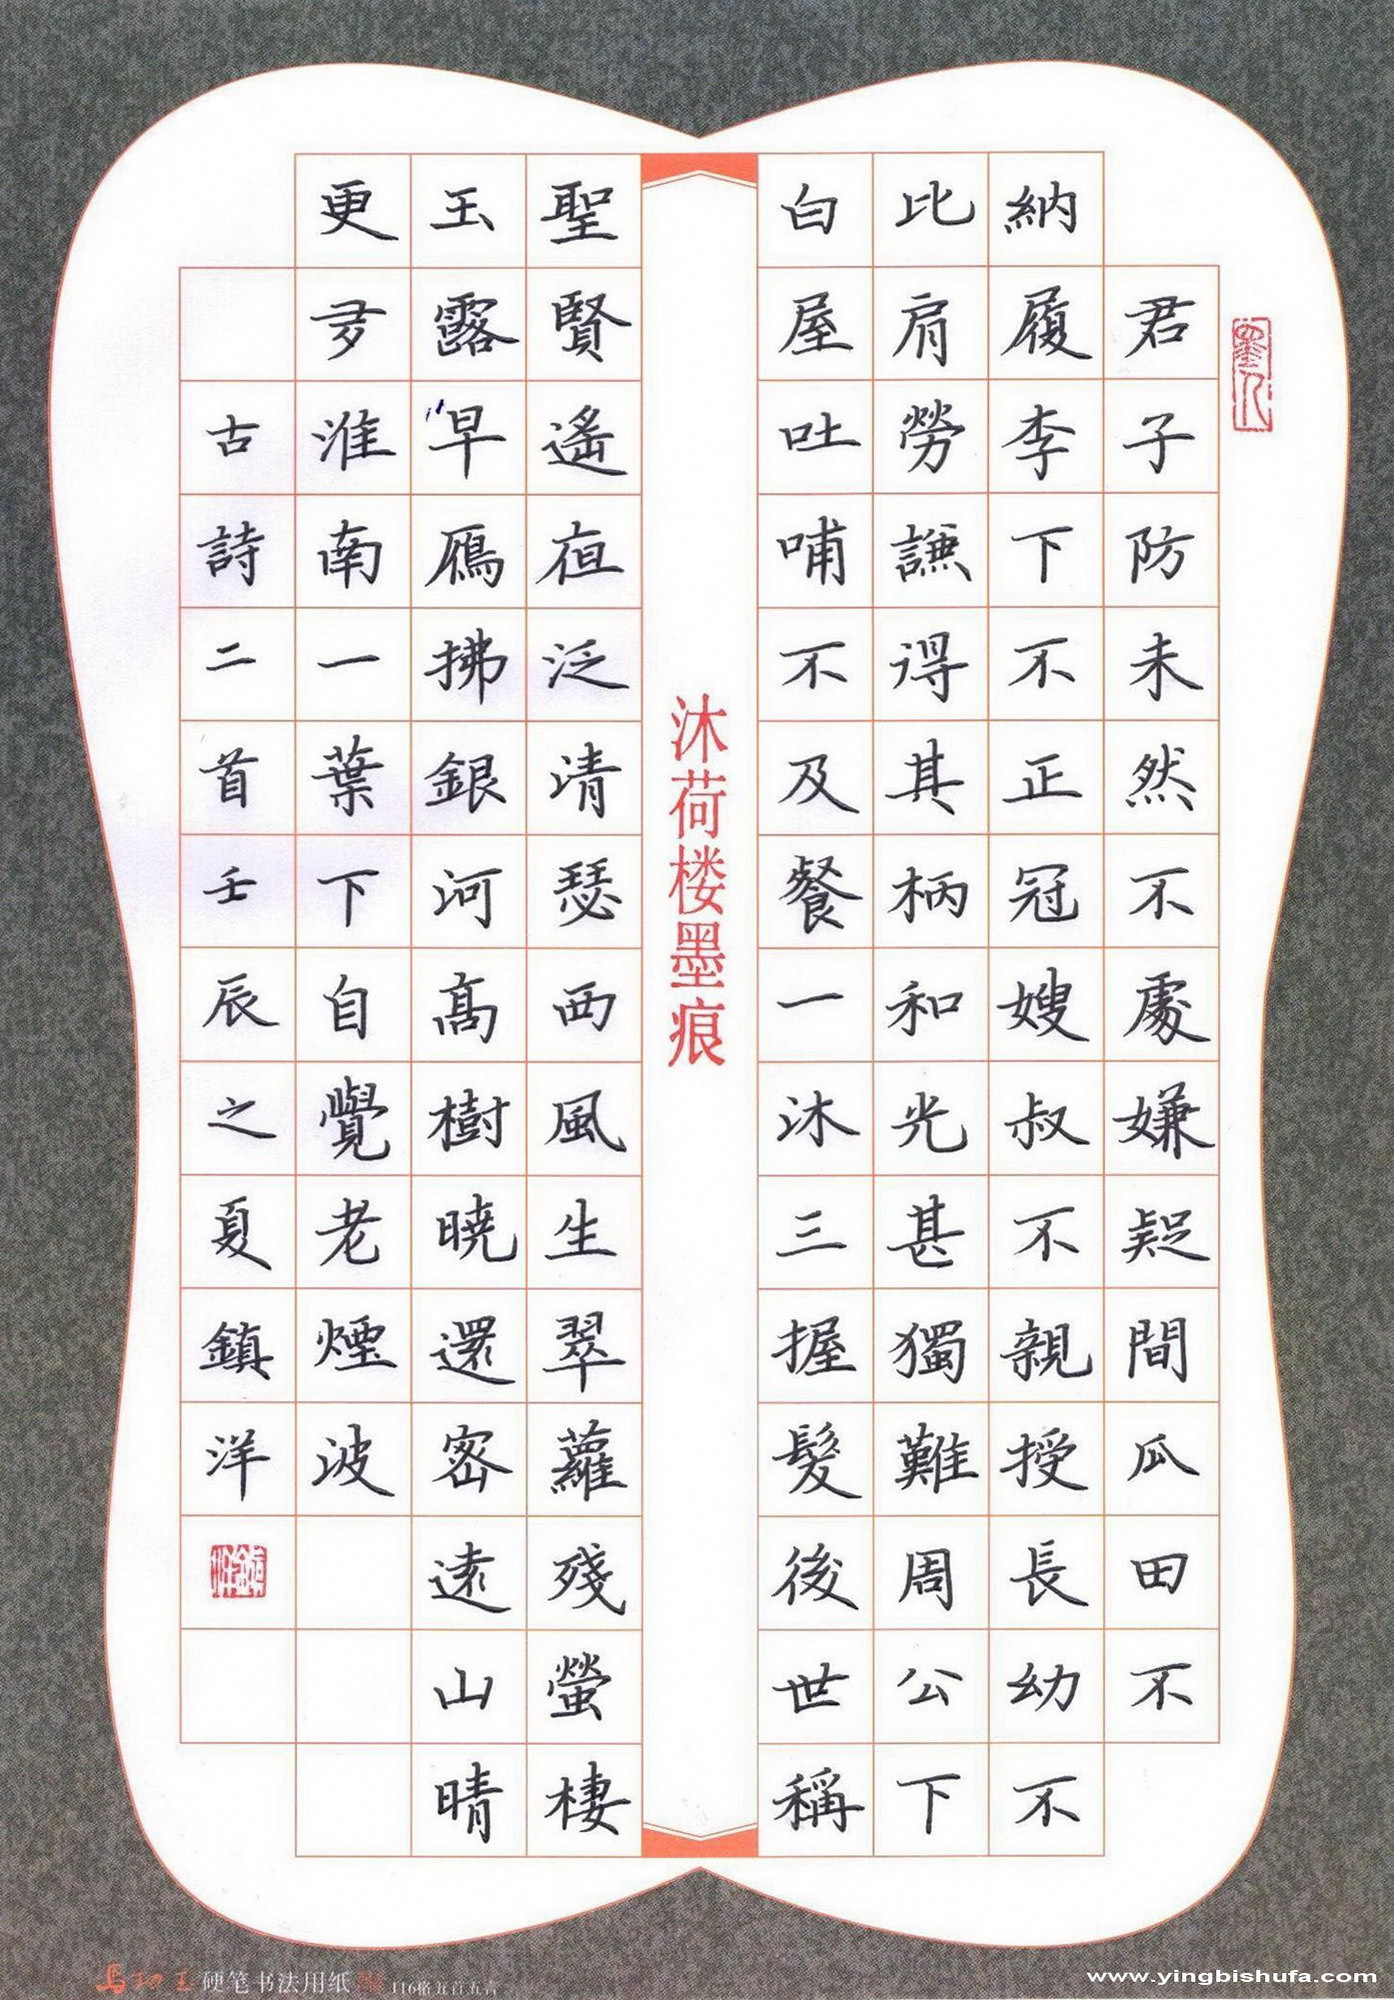 君子防未然不處嫌疑間瓜田不
納履李下不正冠嫂叔不親授長幼不
比肩勞謙得其柄和光甚獨難周公下
白屋吐哺不及餐一沐三握髮後世稱
沐荷楼墨痕
聖賢遙亱泛清瑟西風生翠蘿殘螢棲
玉露早鴈拂銀河髙樹曉還密遠山晴
更夛淮南一葉下自覺老煙波
古詩二首壬辰之夏鎮洋
鎮洋
硬笔书法用纸
116格五首五言
www.yingbishufa.com